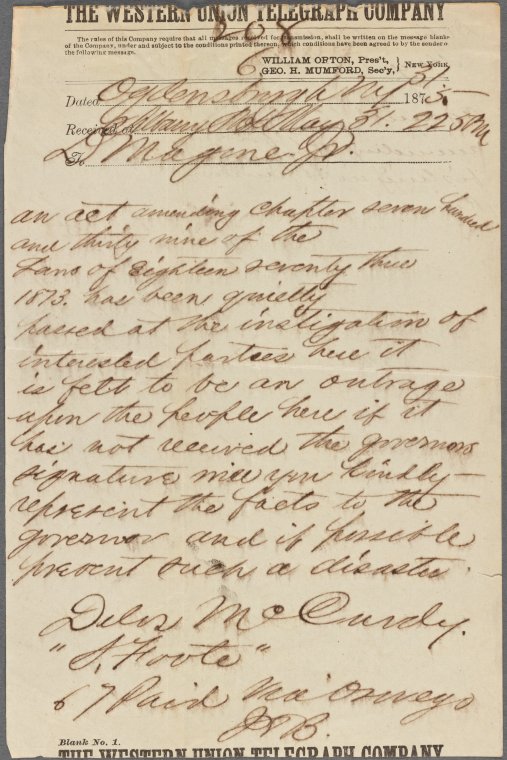 THE WESTERN UNION TELEGRAPH COMPANY
208
The rules of this Company require that all messages received for transmission, shall be written on the message blanks
of the Company, under and subject to the conditions printed thereon, which conditions have been agreed to by the sender o
the following message.
6
WILLIAM ORTON, Pres't,
GEO. H. MUMFORD, Sec'y,
NEW YORK
Dated Ogdensburgh 187
Received at Albany May 225
To D Magone Jr.
an act amending chapter seven hundred
and thirty nine of the
Laws of Eighteen seventy three
1873. has been quietly
passed at the instigation of
interested parties here it
is felt to be an outrage
upon the people here if it
has not received the governors
signature will you kindly
represent the facts to the
governor and if possible
prevent such a disaster.
Delos McCurdy.
"S. Foote"
67 Paid via Oswego
Blank No. 1.
THE WESTERN UNION TELEGRAPH COMPANY